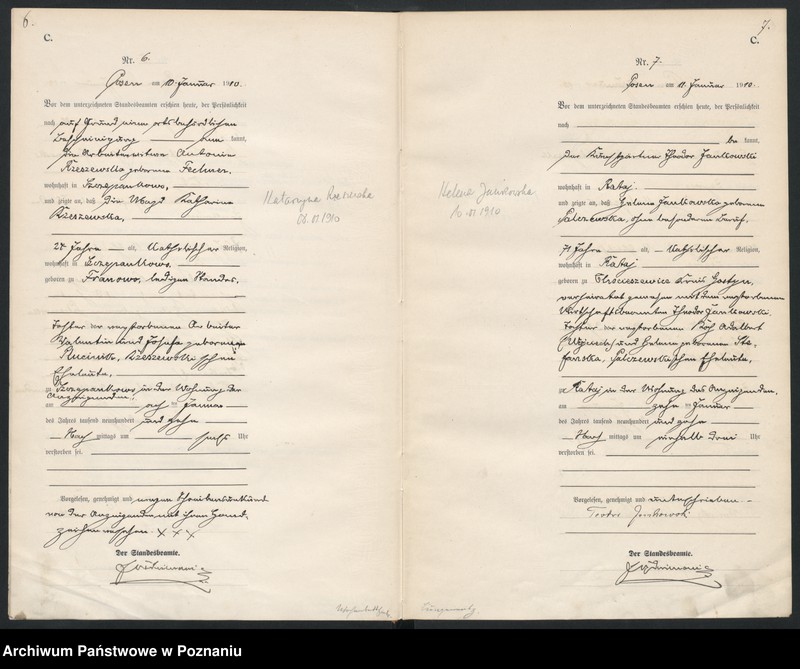 6.
C.
Nr. 6.
Posen am 10. Januar 1910.
Vor dem unterzeichneten Standesbeamten erschien heute, der Persönlichkeit
nach auf Grund einer ortsbehördlichen
Bescheinigung kannt,
die Arbeiterwitwe Antonie
Rzeszewska geborene
wohnhaft in Szczepankowo,
und zeigte an, daß die Magd Katharina
Rzeszewska,
27 Jahre alt, katholischer Religion,
wohnhaft in Szczepankowo
geboren zu Franowo, ledigen Standes,
Tochter der verstorbenen Arbeiter
Valentin und Josefa geborenen
Rzeszewski'schen
Eheleute,
zu Szczepankowo in der Wohnung der
Anzeigenden,
am acht ten Januar
des Jahres tausend neunhundert und zehn
Nach mittags um sechs Uhr
verstorben sei.
Vorgelesen, genehmigt und wegen Schreibensunkunde
von der Anzeigenden mit ihren Hand-
zeichen versehen. X X X
Der Standesbeamte.
Katarzyna Rzeszewska
7.
C.
Nr. 7.
Posen am 11. Januar 1910.
Vor dem unterzeichneten Standesbeamten erschien heute, der Persönlichkeit
nach
be kannt,
der Theodor Jankowski
wohnhaft in Rataj
und zeigte an, daß Helena Jankowska geborene
Palczewska, ohne besonderen Beruf,
71 Jahre alt, katholischer Religion,
wohnhaft in Rataj
geboren zu Kreis Gostyn,
verheiratet gewesen mit dem verstorbenen
Wirtschaftsbeamten Theodor Jankowski
Tochter der verstorbenen Koch Adalbert
und Helena geborenen Ste-
fanska, Palczewski'schen Eheleute,
zu Rataj in der Wohnung des Anzeigenden,
am zehn ten Januar
des Jahres tausend neunhundert und zehn
Nach mittags um einhalb drei Uhr
verstorben sei.
Vorgelesen, genehmigt und unterschrieben
Teodor Jankowski
Der Standesbeamte.
Helena Jankowska
10.01.1910
Archiwum Państwowe w Poznaniu